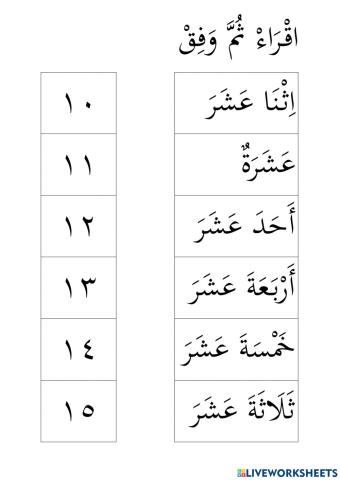 اقْرَاءْ ثُمَّ وَفِقْ
اِثْنَا عَشَرَ ١٠
عَشَرَةٌ ١١
أَحَدَ عَشَرَ ١٢
أَرْبَعَةَ عَشَرَ ١٣
خَمْسَةَ عَشَرَ ١٤
ثَلَاثَةَ عَشَرَ ١٥
LIVEWORKSHEETS